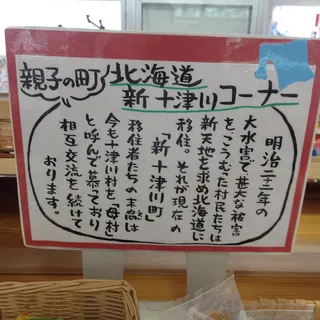 親子の町
北海道
新十津川コーナー
明治二十二年の
大水害で甚大な被害
をこうむった村民たちは
新天地を求め北海道に
移住。それが現在の
「新十津川町」
移住者たちの末裔は
今も十津川村を「母村」
と呼んで慕っており
相互交流を続けて
おります。